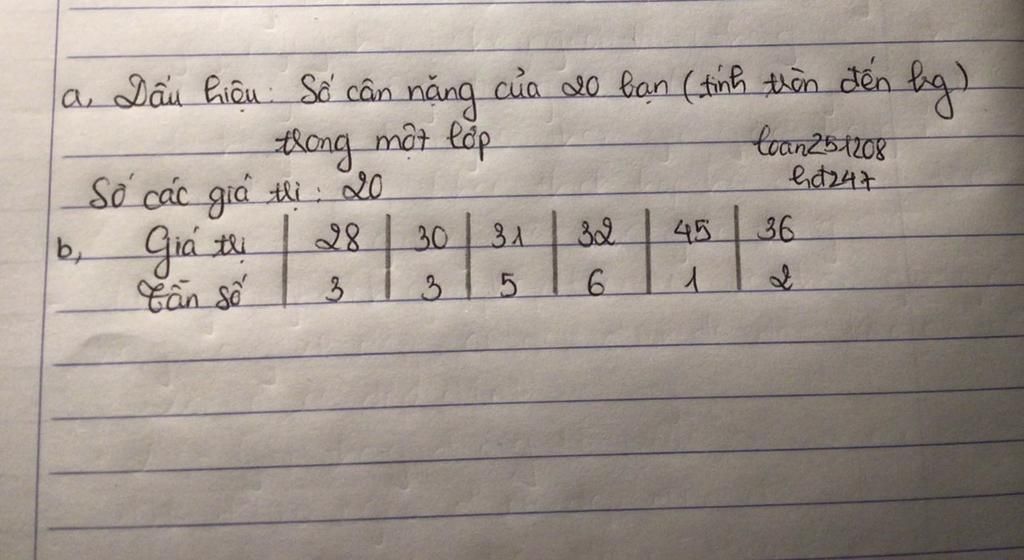 a, Dấu hiệu: Số cân nặng của 20 bạn (tính tròn đến kg)
trong một lớp
loan251208
hd247
Số các giá trị: 20
b, Giá trị | 28 | 30 | 31 | 32 | 45 | 36
Tần số | 3 | 3 | 5 | 6 | 1 | 2